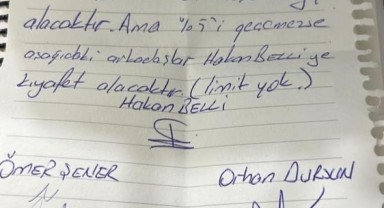 alacaktır. Ama %5'i geçmezse
aşağıdaki arkadaşlar Hakan Belli'ye
kıyafet alacaktır (limit yok.)
Hakan BELLİ
ÖMER ŞENER
Orhan DURSUN